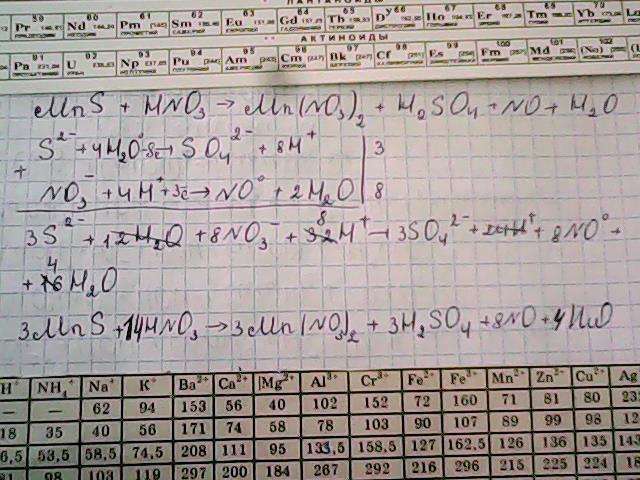 ЛАНТАНОИДЫ
59 60 61 62 63 64 65 66 67 68 69 70
Pr Nd Pm Sm Eu Gd Tb Dy Ho Er Tm Yb
АКТИНОИДЫ
91 92 93 94 95 96 97 98 99 100 101 102
Pa U Np Pu Am Cm Bk Cf Es Fm Md (No)
MnS + HNO₃ → Mn(NO₃)₂ + H₂SO₄ + NO + H₂O
S²⁻ + 4H₂O -8e → SO₄²⁻ + 8H⁺ | 3
+
NO₃⁻ + 4H⁺ +3e → NO⁰ + 2H₂O | 8
8
3S²⁻ + 12H₂O + 8NO₃⁻ + 32H⁺ → 3SO₄²⁻ + 24H⁺ + 8NO⁰ +
4
+ 16H₂O
3MnS + 14HNO₃ → 3Mn(NO₃)₂ + 3H₂SO₄ + 8NO + 4H₂O
H⁺ NH₄⁺ Na⁺ K⁺ Ba²⁺ Ca²⁺ Mg²⁺ Al³⁺ Cr³⁺ Fe²⁺ Fe³⁺ Mn²⁺ Zn²⁺ Cu²⁺ Ag
— — 62 94 153 56 40 102 152 72 160 71 81 80 23
18 35 40 56 171 74 58 78 103 90 107 89 99 98 12
6,5 53,5 58,5 74,5 208 111 95 133,5 158,5 127 162,5 126 136 135 143
81 98 103 119 297 200 184 267 292 216 296 215 225 224 18